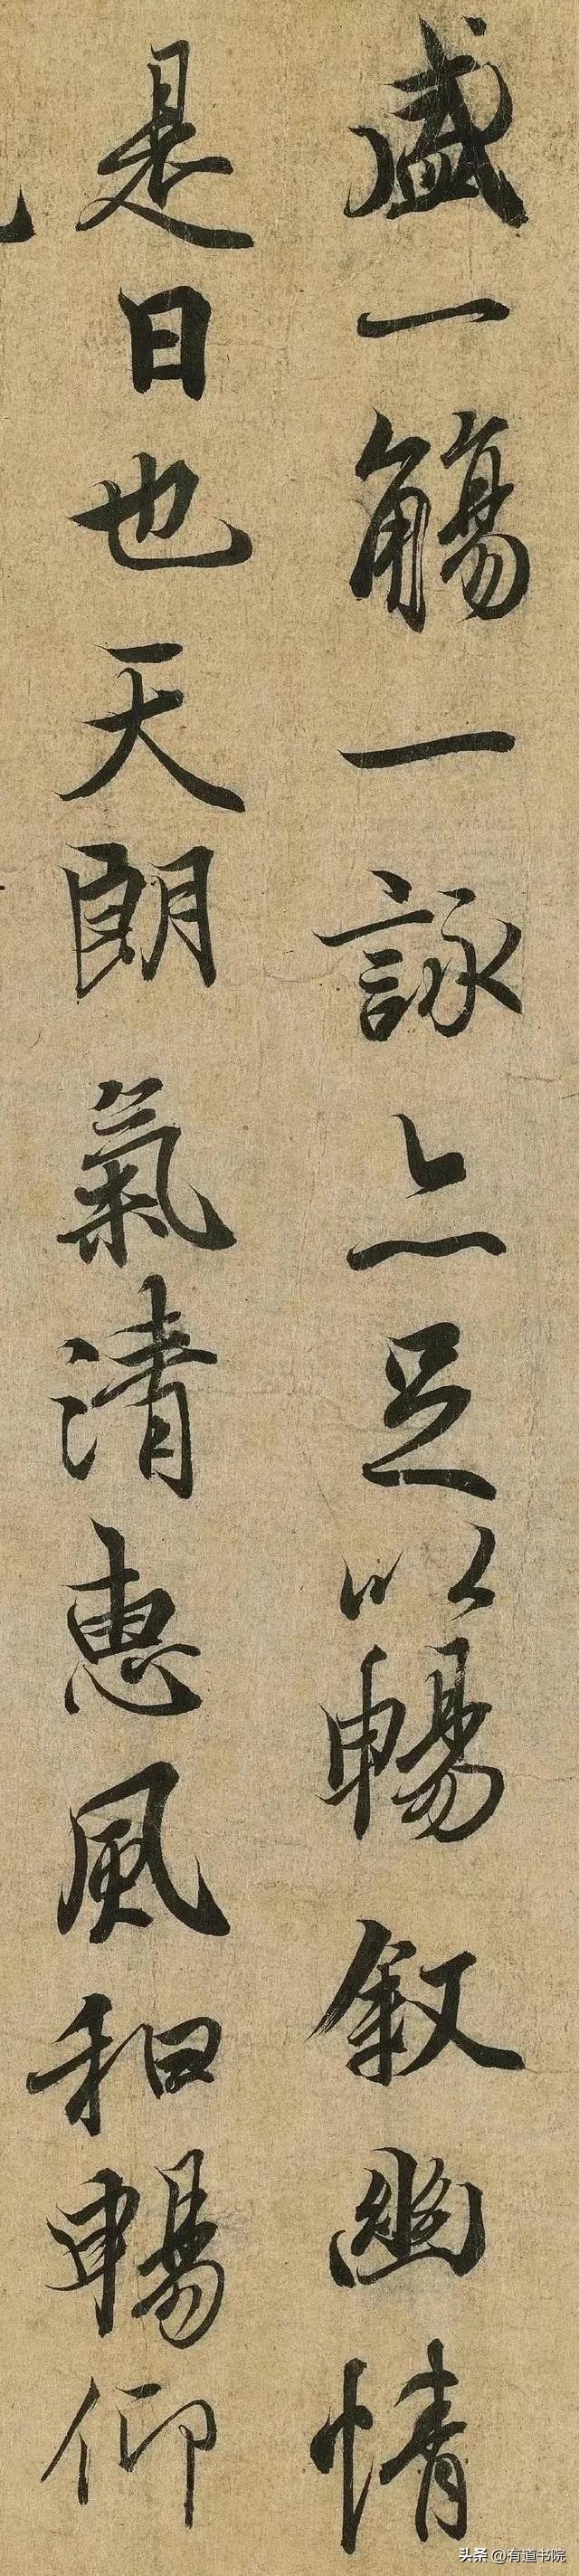 盛一觴一詠亦足以暢叙幽情
是日也天朗氣清惠風和暢仰
头条 @有道书院